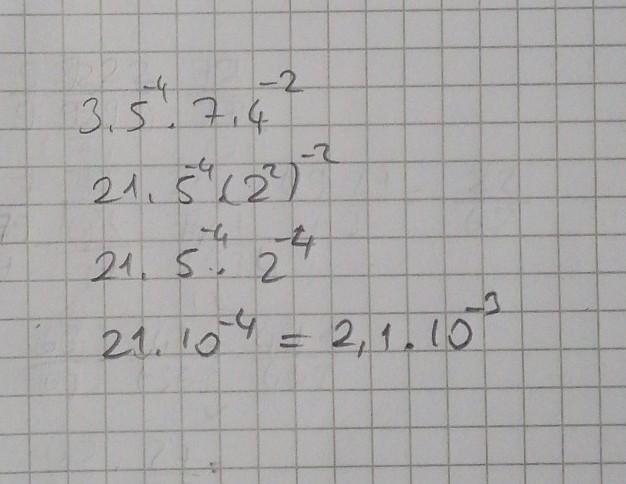 3.5⁻⁴.7.4⁻²
21.5⁻⁴.(2²)⁻²
21.5⁻⁴.2⁻⁴
21.10⁻⁴ = 2,1.10⁻³